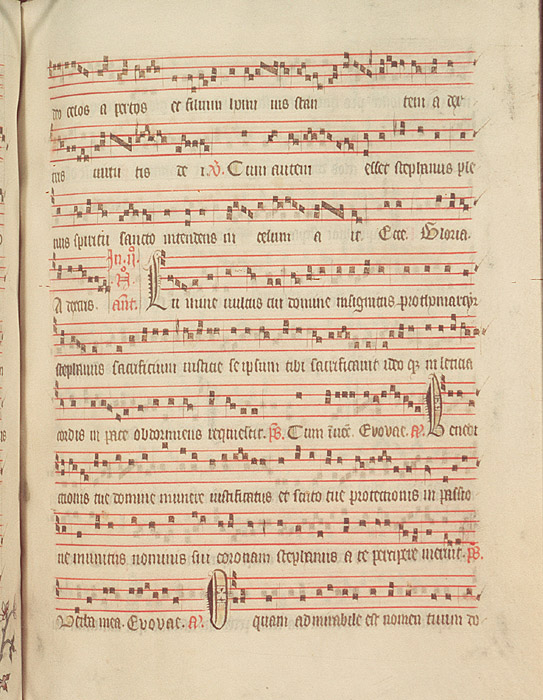 deo celos a pertos et filium homi nis stan tem a dex
tris uirtu tis de i. V. Cum autem esset stephanus ple
nus spiritu sancto intendens in celum a it. Ecce. Gloria.
In. ij. no.
A dextris. ant. Lu mine uultus tui domine insignitus prothomartyr
stephanus sacrificium iusticie se ipsum tibi sacrificauit ideo que in leticia
cordis in pace obdormiens requieuit. ps. Cum inuo. Evovae. a. Benedi
ctionis tue domine munere iustificatus et scuto tue protectionis in passio
ne munitus nominis sui coronam stephanus a te percipere meruit. ps.
Verba mea. Evovae. a. O quam admirabile est nomen tuum do